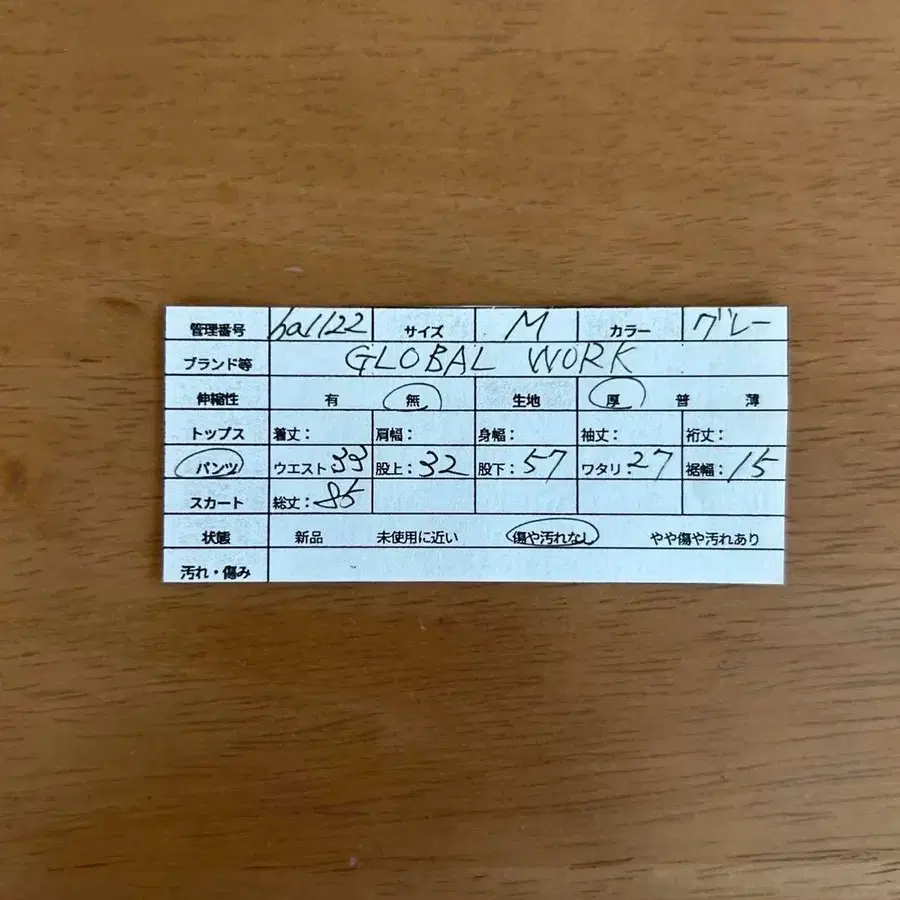 管理番号 ba1122 サイズ M カラー グレー
ブランド等 GLOBAL WORK
伸縮性 有 無 生地 厚 普 薄
トップス 着丈: 肩幅: 身幅: 袖丈: 裄丈:
パンツ ウエスト 33 股上: 32 股下: 57 ワタリ: 27 裾幅: 15
スカート 総丈: 85
状態 新品 未使用に近い 傷や汚れなし やや傷や汚れあり
汚れ・傷み